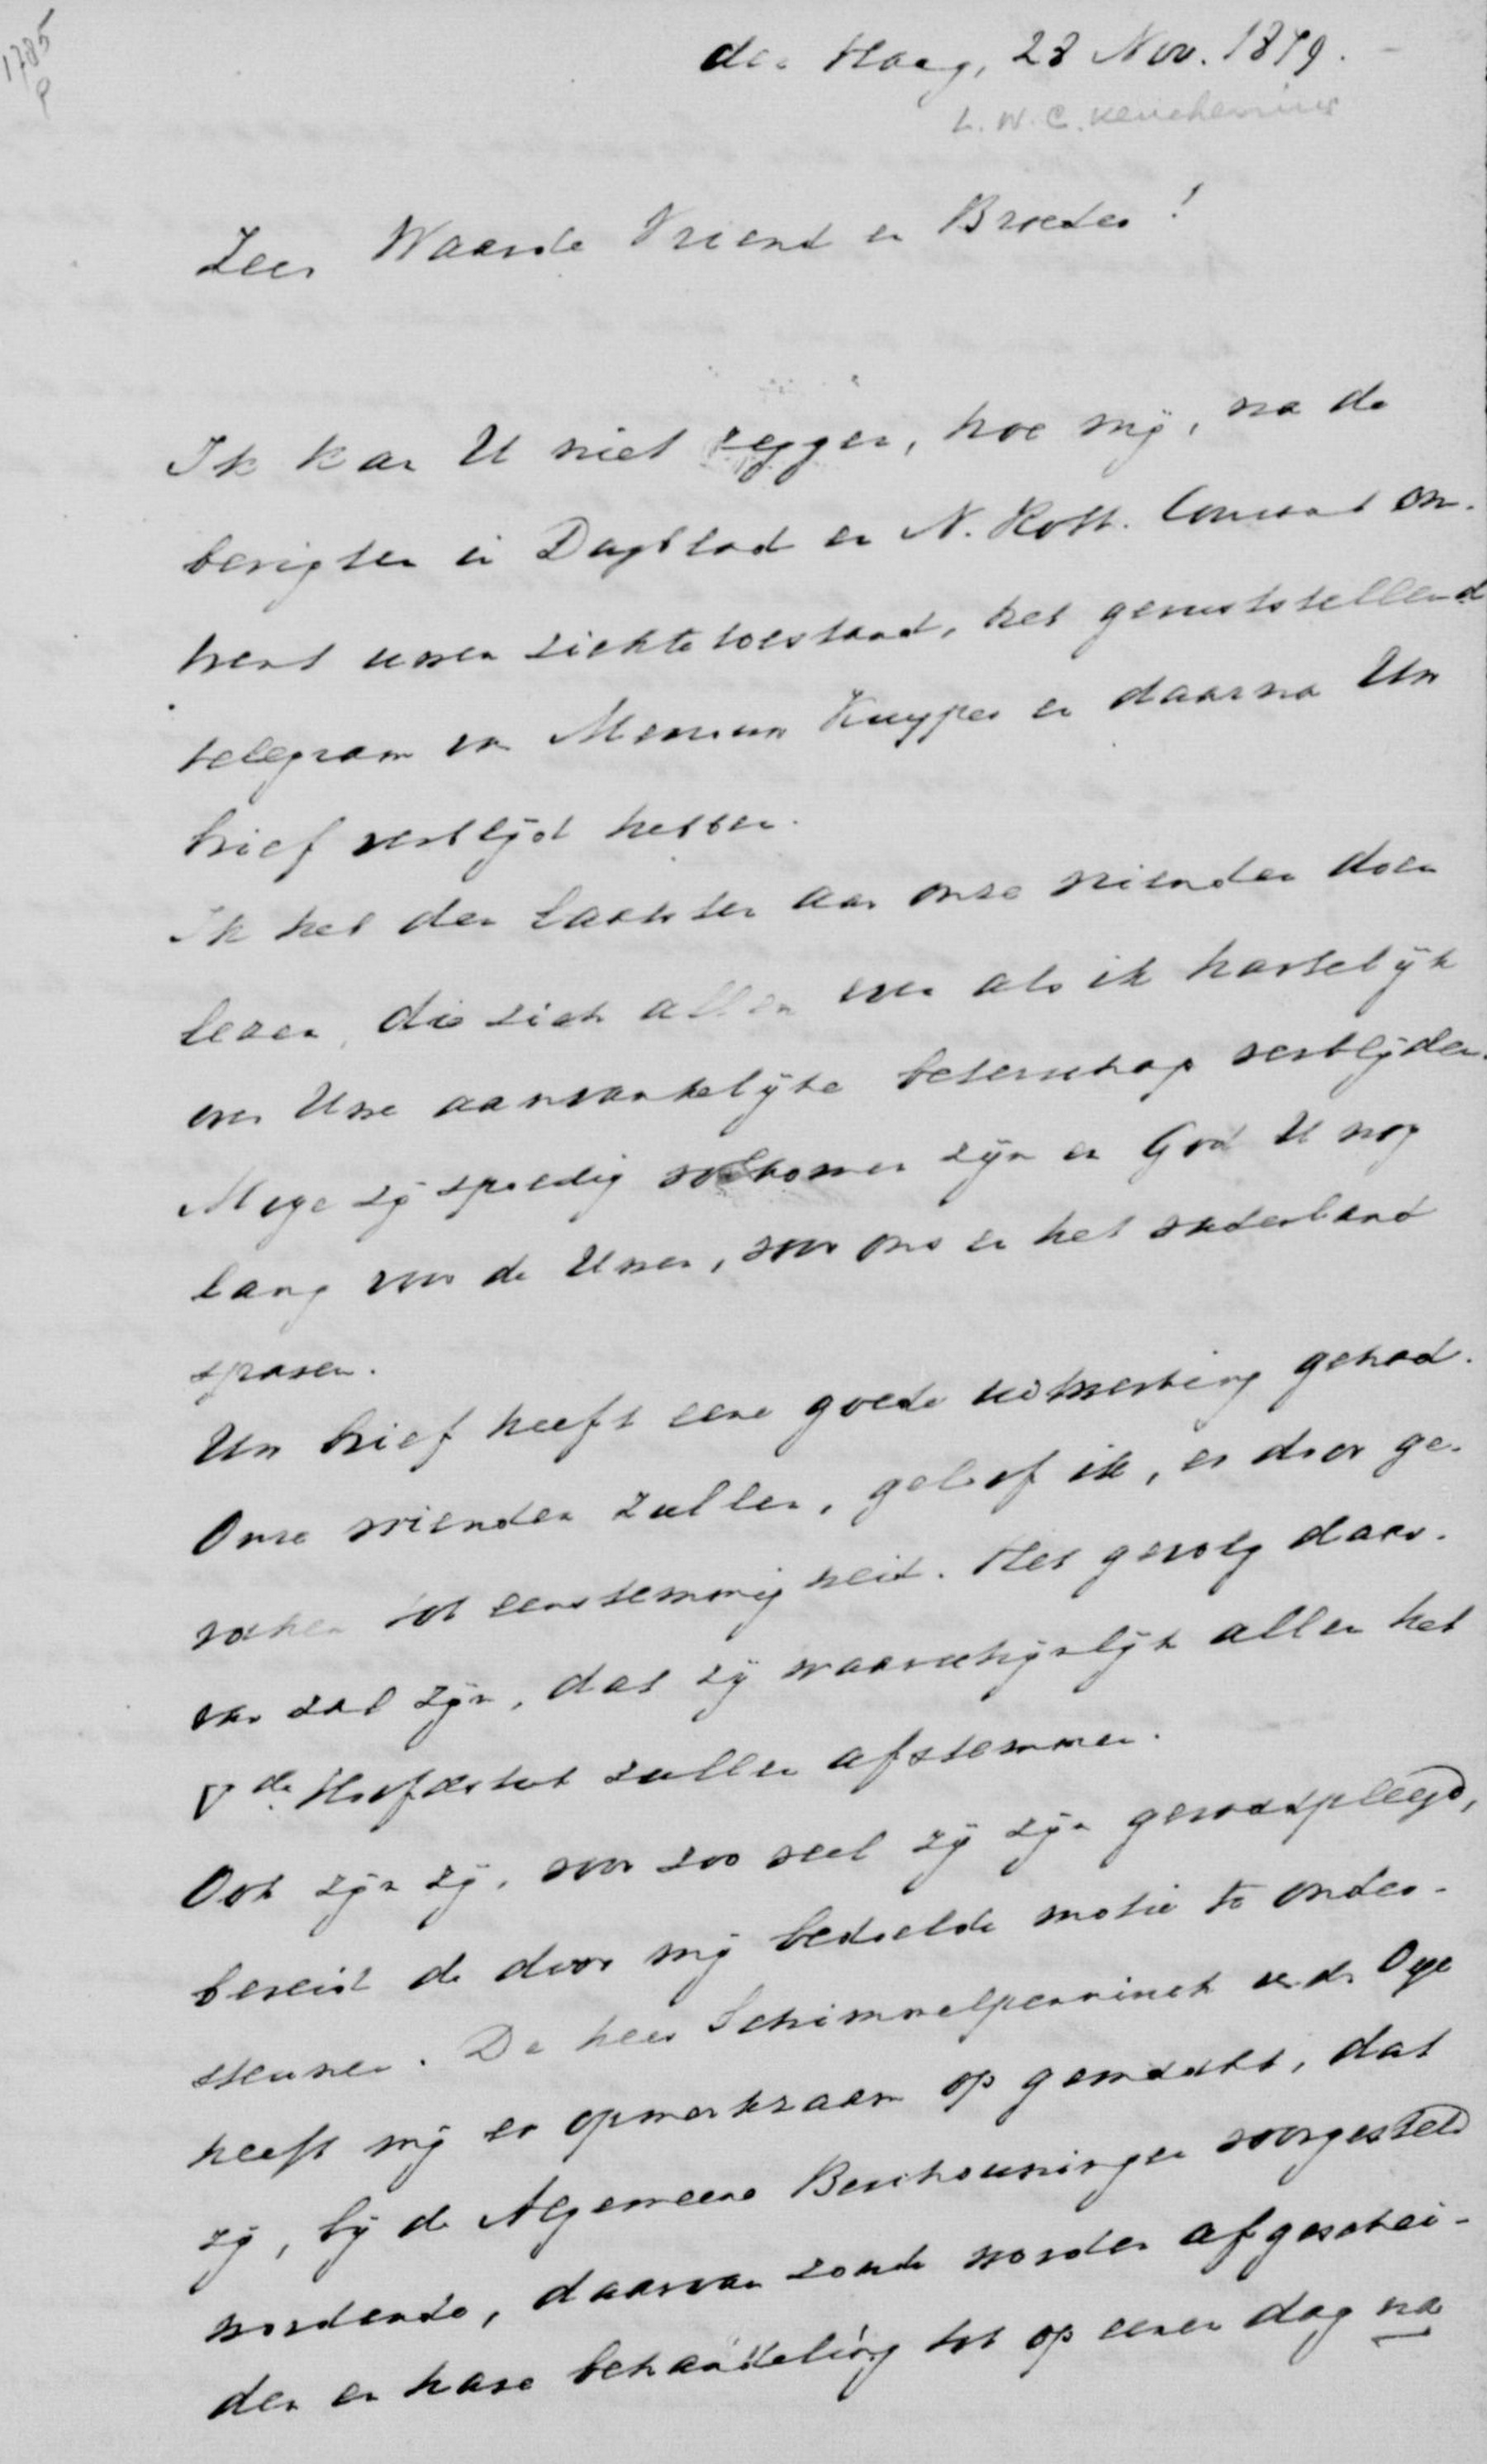 1785
P
den Haag, 28 Nov. 1879.
L.W.C. Keuchenius
Zeer Waarde Vriend en Broeder!
Ik kan U niet zeggen, hoe mij, na de
berigten in Dagblad en N. Rott. Courant om-
trent uwen ziektetoestand, het geruststellend
telegram van Mevrouw Kuyper en daarna Uw
brief verblijd hebben.
Ik heb den laatsten aan onze vrienden doen
lezen, die zich allen even als ik hartelijk
over Uwe aanvankelijke beterschap verblijden.
Moge zij spoedig volkomen zijn en God U nog
lang voor de Uwen, voor ons en het vaderland
sparen.
Uw brief heeft eene goede uitwerking gehad.
Onze vrienden zullen, geloof ik, er door ge-
raken tot eenstemmigheid. Het gevolg daar-
van zal zijn, dat zij waarschijnlijk allen het
Vde Hoofdstuk zullen afstemmen.
Ook zijn zij, voor zoo veel zij zijn geraadpleegd,
bereid de door mij bedoelde motie te onder-
steunen. De heer Schimmelpenninck v.d. Oye
heeft mij er opmerkzaam op gemaakt, dat
zij, bij de Algemeene Beschouwingen voorgesteld
wordende, daarvan zoude worden afgeschei-
den en hare behandeling tot op eenen dag na